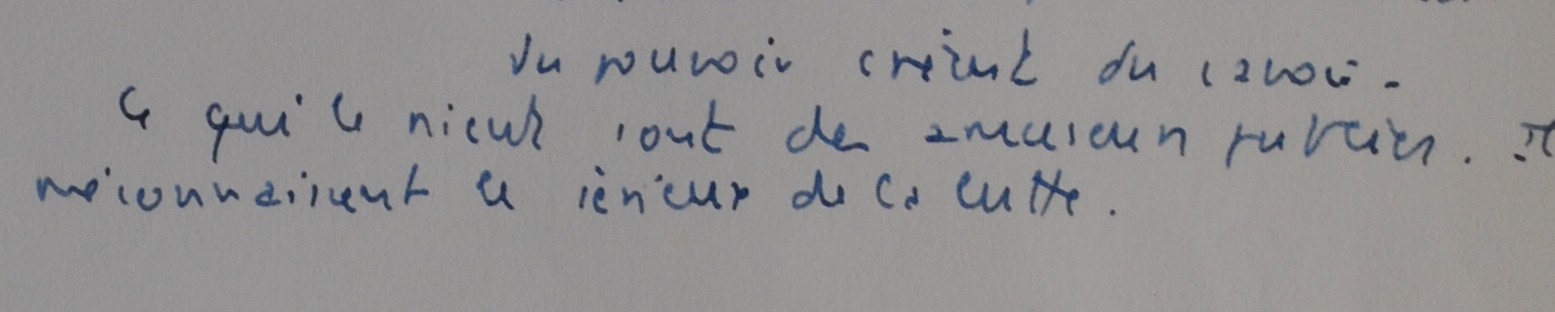 du pouvoir créent du savoir.
Ce qui le nient sont des amuseurs publics. Ils
méconnaissent le sérieux de la lutte.